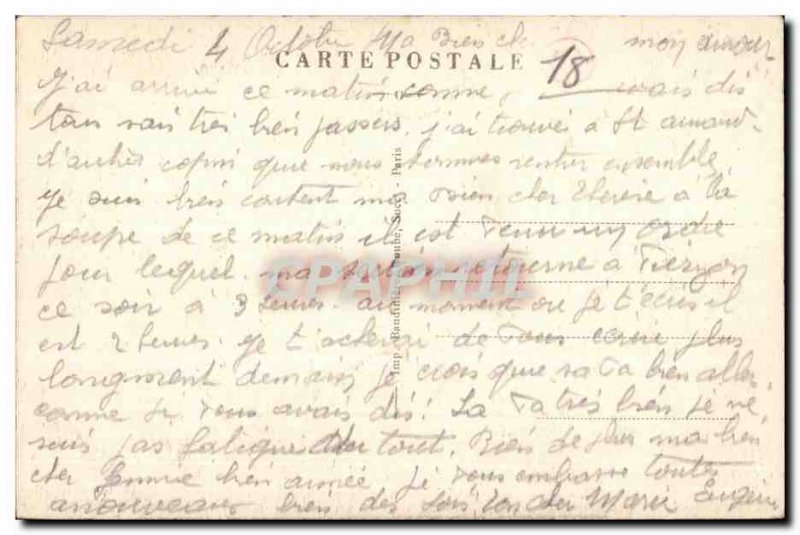 Samedi 4 Octobre Ma Bien ch mon amour
CARTE POSTALE
18
J'ai arrivé ce matin comme, vais dis
tous sais très bien passers, j'ai trouvés à St amand
d'autres copin que nous sommes rentrer ensemble
Je suis bien content ma Bien cher Therese à la
soupe de ce matin il est venu un ordre
pour lequel ma section retourne à Vierzon
ce soir à 3 heures au moment ou je t'écris il
est 2 heures je t' de vous ecrire plus
longment demain, je crois que sa va bien aller
comme je vous avais dis! Sa va très bien je ne
suis pas fatigue du tout. Bien de plus ma bien
cher Femme bien aimée je vous embrasse toutes
anouveaux bien des fois ton cher Marie Eugène
Imp. Baudinière, Paris
CPAPHIL